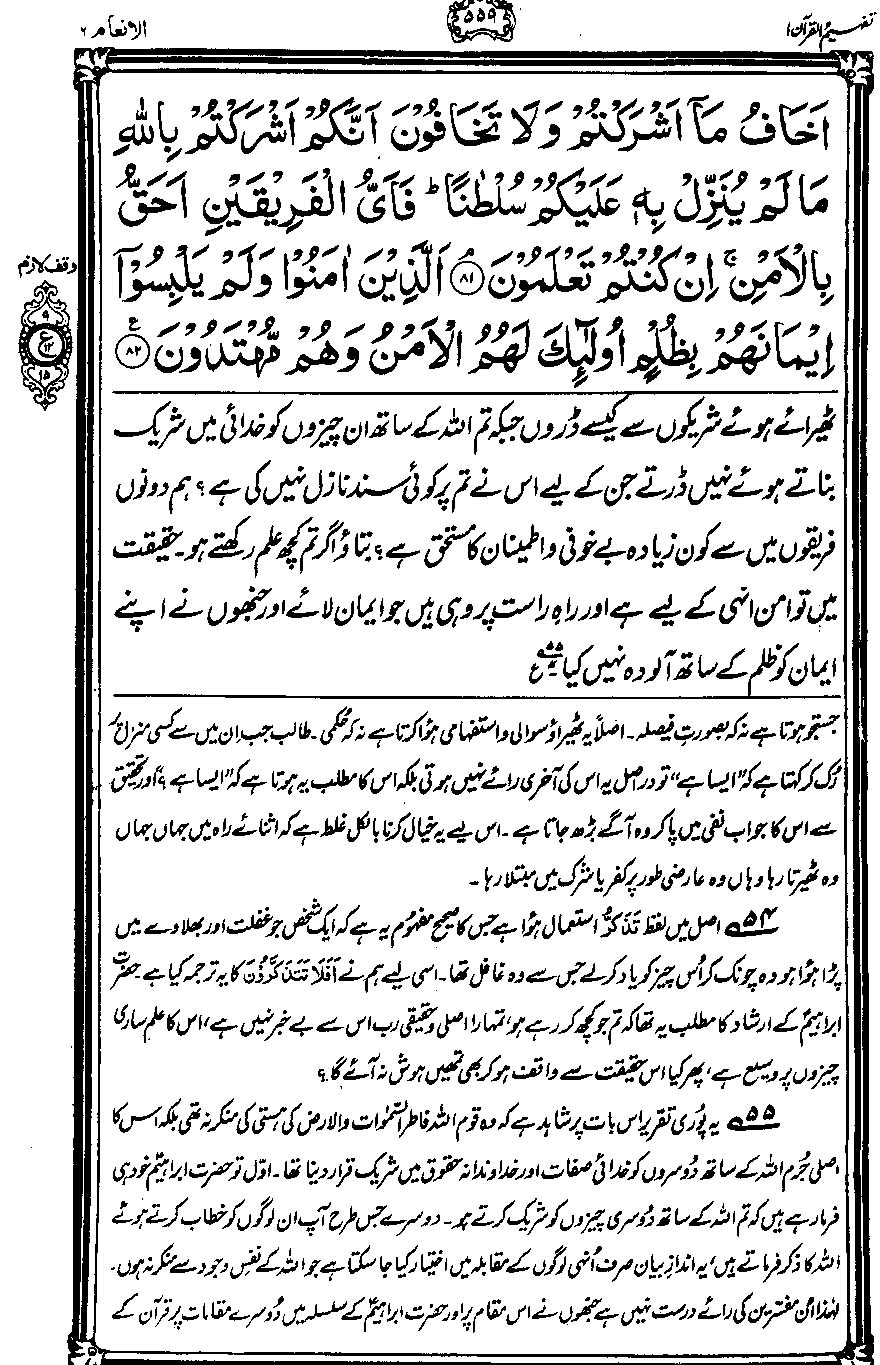 تفہیم القرآن ۱
۵۵۹
الانعام ۶
اَخَافُ مَاۤ اَشْرَكْتُمْ وَلَا تَخَافُوْنَ اَنَّكُمْ اَشْرَكْتُمْ بِاللّٰهِ
مَا لَمْ يُنَزِّلْ بِهٖ عَلَيْكُمْ سُلْطٰنًا ؕ فَاَىُّ الْفَرِيْقَيْنِ اَحَقُّ
بِالْاَمْنِ ۚ اِنْ كُنْتُمْ تَعْلَمُوْنَ ۘ ۸۱ اَلَّذِيْنَ اٰمَنُوْا وَلَمْ يَلْبِسُوْۤا
وقف لازم
اِيْمَانَهُمْ بِظُلْمٍ اُولٰٓئِكَ لَهُمُ الْاَمْنُ وَهُمْ مُّهْتَدُوْنَ ۸۲ ع
۹
ع
۱۵
ٹھیرائے ہوئے شریکوں سے کیسے ڈروں جبکہ تم اللہ کے ساتھ ان چیزوں کو خدائی میں شریک
بناتے ہوئے نہیں ڈرتے جن کے لیے اس نے تم پر کوئی سند نازل نہیں کی ہے؟ ہم دونوں
فریقوں میں سے کون زیادہ بے خوفی و اطمینان کا مستحق ہے؟ بتاؤ اگر تم کچھ علم رکھتے ہو۔ حقیقت
میں تو امن انہی کے لیے ہے اور راہِ راست پر وہی ہیں جو ایمان لائے اور جنھوں نے اپنے
ایمان کو ظلم کے ساتھ آلودہ نہیں کیا ۵۵ ع
جستجو ہوتا ہے نہ کہ بصورتِ فیصلہ۔ اصلاً یہ ٹھیراؤ سوالی و استفہامی ہوا کرتا ہے نہ کہ حکمی۔ طالب جب ان میں سے کسی منزل پر
رُک کر کہتا ہے کہ "ایسا ہے" تو دراصل یہ اس کی آخری رائے نہیں ہوتی بلکہ اس کا مطلب یہ ہوتا ہے کہ "ایسا ہے؟" اور تحقیق
سے اس کا جواب نفی میں پا کر وہ آگے بڑھ جاتا ہے۔ اس لیے یہ خیال کرنا بالکل غلط ہے کہ اثنائے راہ میں جہاں جہاں
وہ ٹھیرتا رہا وہاں وہ عارضی طور پر کفر یا شرک میں مبتلا رہا۔
۵۴؎ اصل میں لفظ تَذَکُّر استعمال ہوا ہے جس کا صحیح مفہوم یہ ہے کہ ایک شخص جو غفلت اور بھلاوے میں
پڑا ہوا ہو وہ چونک کر اُس چیز کو یاد کر لے جس سے وہ غافل تھا۔ اسی لیے ہم نے اَفَلَا تَتَذَكَّرُوْنَ کا یہ ترجمہ کیا ہے حضرت
ابراہیمؑ کے ارشاد کا مطلب یہ تھا کہ تم جو کچھ کر رہے ہو، تمہارا اصلی و حقیقی رب اس سے بے خبر نہیں ہے، اس کا علم ساری
چیزوں پر وسیع ہے، پھر کیا اس حقیقت سے واقف ہو کر بھی تمھیں ہوش نہ آئے گا؟
۵۵؎ یہ پُوری تقریر اس بات پر شاہد ہے کہ وہ قوم اللہ فاطر السّمٰوات والارض کی ہستی کی منکر نہ تھی بلکہ اس کا
اصلی جُرم اللہ کے ساتھ دُوسروں کو خدائی صفات اور خداوندانہ حقوق میں شریک قرار دینا تھا۔ اوّل تو حضرت ابراہیمؑ خود ہی
فرما رہے ہیں کہ تم اللہ کے ساتھ دُوسری چیزوں کو شریک کرتے ہو۔ دوسرے جس طرح آپ ان لوگوں کو خطاب کرتے ہوئے
اللہ کا ذکر فرماتے ہیں، یہ اندازِ بیان صرف اُنہی لوگوں کے مقابلہ میں اختیار کیا جا سکتا ہے جو اللہ کے نفسِ وجود سے منکر نہ ہوں۔
لہٰذا اُن مفسّرین کی رائے درست نہیں ہے جنھوں نے اس مقام پر اور حضرت ابراہیمؑ کے سلسلہ میں دُوسرے مقامات پر قرآن کے